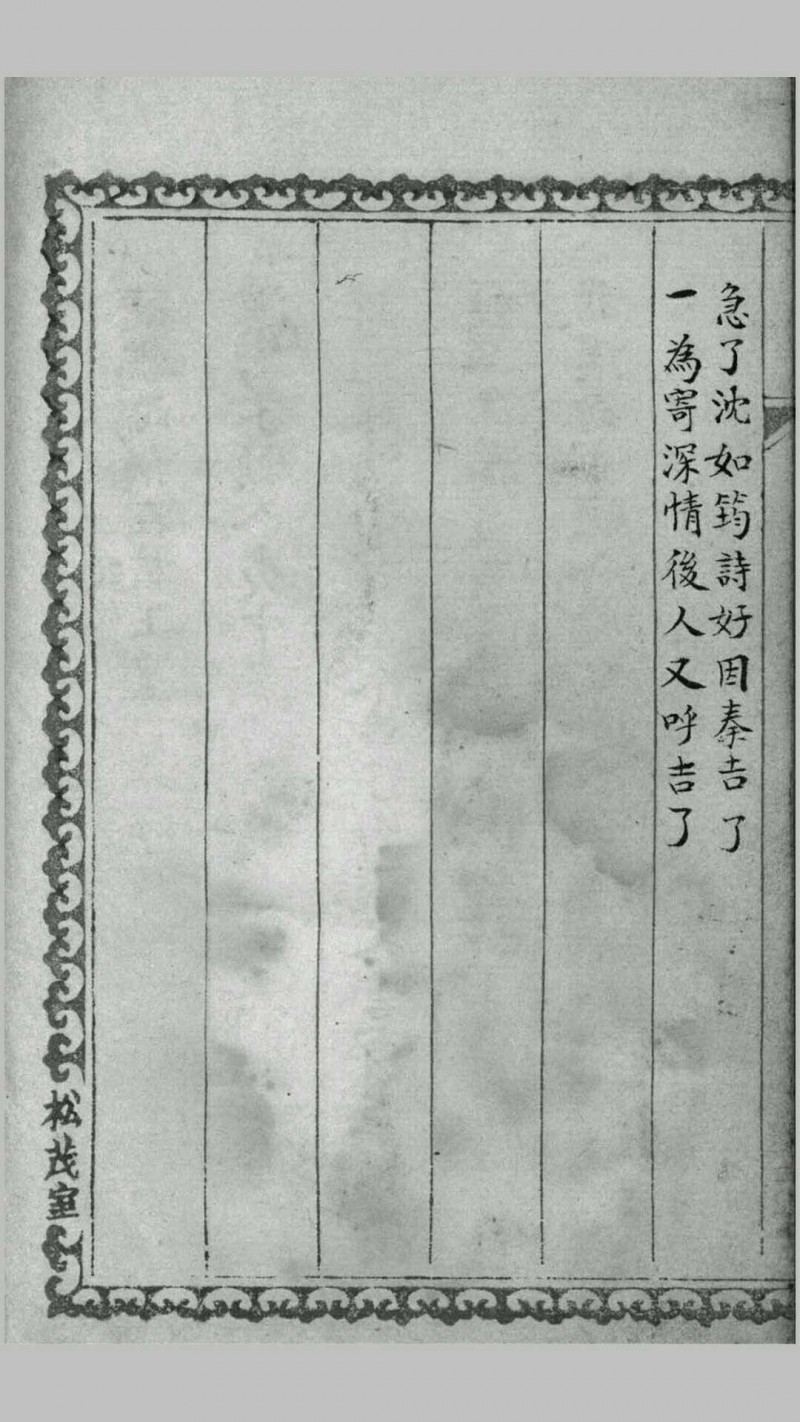 急了沈如筠詩好因秦吉了
一為寄深情後人又呼吉了
松茂室